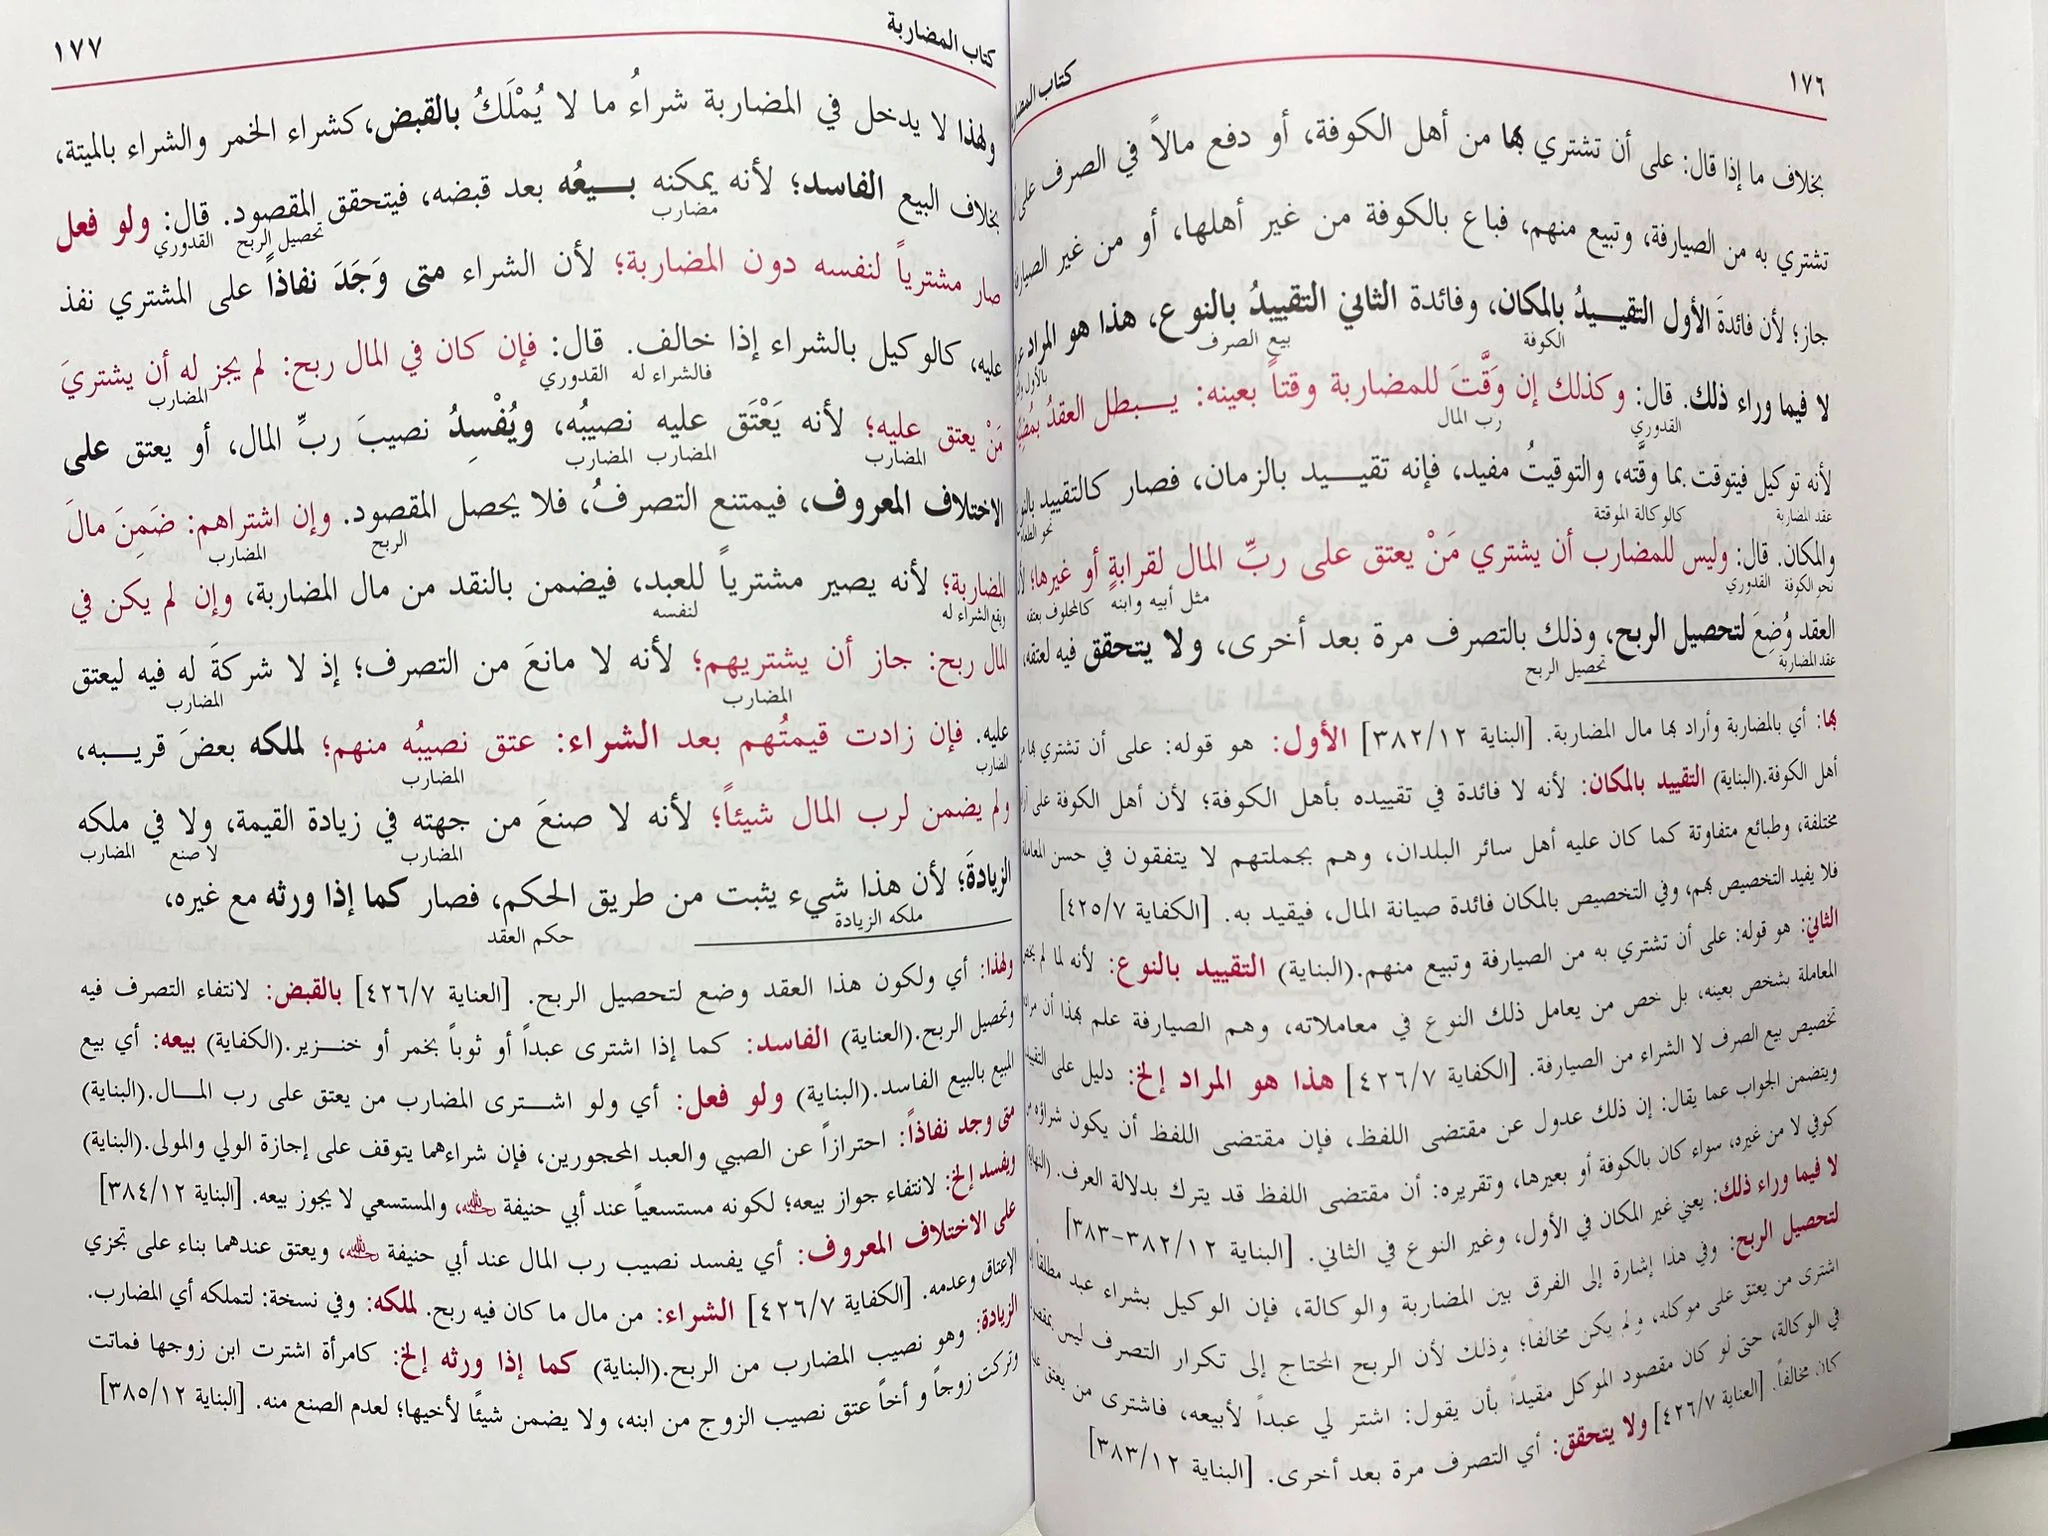 ١٧٦
كتاب المضاربة
بخلاف ما إذا قال: على أن تشتري بها من أهل الكوفة، أو دفع مالاً في الصرف على
تشتري به من الصيارفة، وتبيع منهم، فباع بالكوفة من غير أهلها، أو من غير
جاز؛ لأن فائدةَ الأول التقييدُ بالمكان، وفائدة الثاني التقييدُ بالنوع، هذا هو المراد
الكوفة بيع الصرف
لا فيما وراء ذلك. قال: وكذلك إن وَقَّتَ للمضاربة وقتاً بعينه: يبطل العقدُ
القدوري رب المال
لأنه توكيل فيتوقت بما وقَّته، والتوقيتُ مفيد، فإنه تقييد بالزمان، فصار كالتقييد
عقد المضاربة كالوكالة الموقتة
والمكان. قال: وليس للمضارب أن يشتري مَنْ يعتق على ربِّ المال لقرابةٍ أو غيرها؛
نحو الكوفة القدوري مثل أبيه وابنه كالمحلوف بعتقه
العقد وُضِعَ لتحصيل الربح، وذلك بالتصرف مرة بعد أخرى، ولا يتحقق فيه لعتقه،
عقد المضاربة تحصيل الربح
بها: أي بالمضاربة وأراد بها مال المضاربة. [البناية ٣٨٢/١٢] الأول: هو قوله: على أن تشتري بها
أهل الكوفة.(البناية) التقييد بالمكان: لأنه لا فائدة في تقييده بأهل الكوفة؛ لأن أهل الكوفة على
مختلفة، وطبائع متفاوتة كما كان عليه أهل سائر البلدان، وهم بجملتهم لا يتفقون في حسن
فلا يفيد التخصيص بهم، وفي التخصيص بالمكان فائدة صيانة المال، فيقيد به. [الكفاية ٤٢٥/٧]
الثاني: هو قوله: على أن تشتري به من الصيارفة وتبيع منهم.(البناية) التقييد بالنوع: لأنه لما لم
المعاملة بشخص بعينه، بل خص من يعامل ذلك النوع في معاملاته، وهم الصيارفة علم بهذا أن
تخصيص بيع الصرف لا الشراء من الصيارفة. [الكفاية ٤٢٦/٧] هذا هو المراد إلخ: دليل على
ويتضمن الجواب عما يقال: إن ذلك عدول عن مقتضى اللفظ، فإن مقتضى اللفظ أن يكون شراؤه
كوفي لا من غيره، سواء كان بالكوفة أو بغيرها، وتقريره: أن مقتضى اللفظ قد يترك بدلالة العرف.
لا فيما وراء ذلك: يعني غير المكان في الأول، وغير النوع في الثاني. [البناية ٣٨٢/١٢-٣٨٣]
لتحصيل الربح: وفي هذا إشارة إلى الفرق بين المضاربة والوكالة، فإن الوكيل بشراء عبد مطلقاً
اشترى من يعتق على موكله، ولم يكن مخالفا؛ وذلك لأن الربح المحتاج إلى تكرار التصرف ليس
في الوكالة، حتى لو كان مقصود الموكل مقيداً بأن يقول: اشتر لي عبداً لأبيعه، فاشترى من يعتق
كان مخالفاً. [العناية ٤٢٦/٧] ولا يتحقق: أي التصرف مرة بعد أخرى. [البناية ٣٨٣/١٢]
كتاب المضاربة
١٧٧
ولهذا لا يدخل في المضاربة شراءُ ما لا يُمْلَكُ بالقبض، كشراء الخمر والشراء بالميتة،
بخلاف البيع الفاسد؛ لأنه يمكنه بيعُه بعد قبضه، فيتحقق المقصود. قال: ولو فعل
مضارب تحصيل الربح القدوري
صار مشترياً لنفسه دون المضاربة؛ لأن الشراء متى وَجَدَ نفاذاً على المشتري نفذ
عليه، كالوكيل بالشراء إذا خالف. قال: فإن كان في المال ربح: لم يجز له أن يشتريَ
فالشراء له القدوري المضارب
مَنْ يعتق عليه؛ لأنه يَعْتَق عليه نصيبُه، ويُفْسِدُ نصيبَ ربِّ المال، أو يعتق على
المضارب المضارب المضارب
الاختلاف المعروف، فيمتنع التصرفُ، فلا يحصل المقصود. وإن اشتراهم: ضَمِنَ مالَ
الربح المضارب
المضاربة؛ لأنه يصير مشترياً للعبد، فيضمن بالنقد من مال المضاربة، وإن لم يكن في
ويقع الشراء له لنفسه
المال ربح: جاز أن يشتريهم؛ لأنه لا مانعَ من التصرف؛ إذ لا شركةَ له فيه ليعتق
المضارب المضارب
عليه. فإن زادت قيمتُهم بعد الشراء: عتق نصيبُه منهم؛ لملكه بعضَ قريبه،
المضارب المضارب
ولم يضمن لرب المال شيئاً؛ لأنه لا صنعَ من جهته في زيادة القيمة، ولا في ملكه
المضارب لا صنع المضارب
الزيادةَ؛ لأن هذا شيء يثبت من طريق الحكم، فصار كما إذا ورثه مع غيره،
ملكه الزيادة حكم العقد
ولهذا: أي ولكون هذا العقد وضع لتحصيل الربح. [العناية ٤٢٦/٧] بالقبض: لانتفاء التصرف فيه
وتحصيل الربح.(العناية) الفاسد: كما إذا اشترى عبداً أو ثوباً بخمر أو خنزير.(الكفاية) بيعه: أي بيع
المبيع بالبيع الفاسد.(البناية) ولو فعل: أي ولو اشترى المضارب من يعتق على رب المال.(البناية)
متى وجد نفاذاً: احترازاً عن الصبي والعبد المحجورين، فإن شراءهما يتوقف على إجازة الولي والمولى.(البناية)
ويفسد إلخ: لانتفاء جواز بيعه؛ لكونه مستسعياً عند أبي حنيفة رحمه الله، والمستسعي لا يجوز بيعه. [البناية ٣٨٤/١٢]
على الاختلاف المعروف: أي يفسد نصيب رب المال عند أبي حنيفة رحمه الله، ويعتق عندهما بناء على تجزي
الإعتاق وعدمه. [الكفاية ٤٢٦/٧] الشراء: من مال ما كان فيه ربح. لملكه: وفي نسخة: لتملكه أي المضارب.
الزيادة: وهو نصيب المضارب من الربح.(البناية) كما إذا ورثه إلخ: كامرأة اشترت ابن زوجها فماتت
وتركت زوجاً و أخاً عتق نصيب الزوج من ابنه، ولا يضمن شيئًا لأخيها؛ لعدم الصنع منه. [البناية ٣٨٥/١٢]